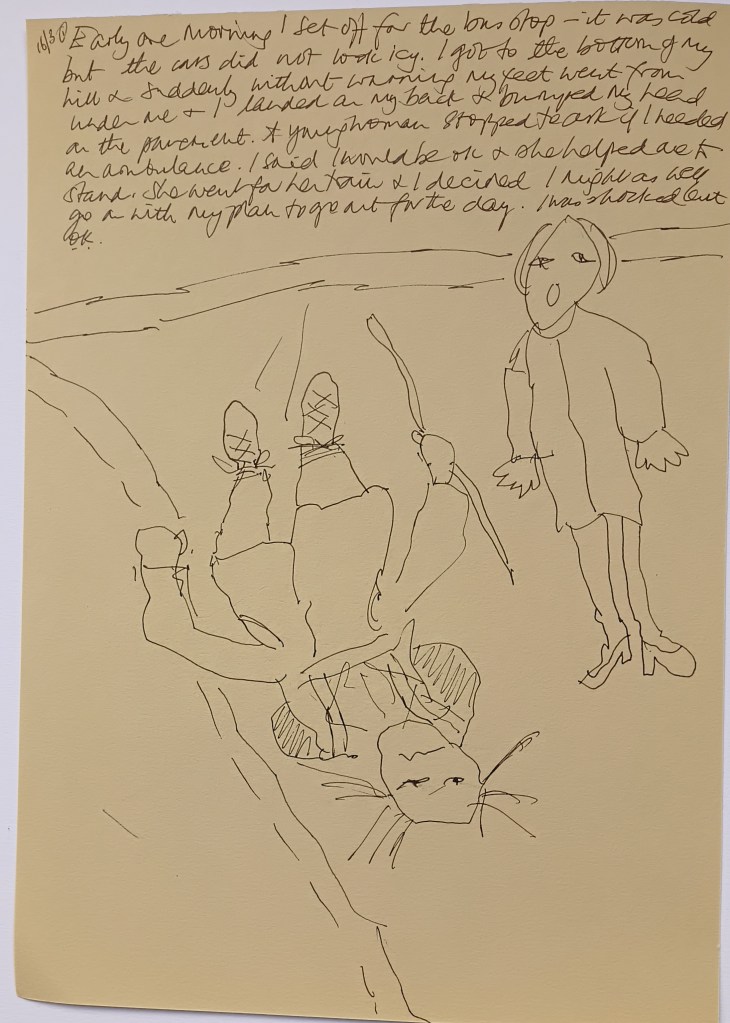 16/30 Early one morning I set off for the bus stop – it was cold
but the cars did not look icy. I got to the bottom of my
hill & suddenly without warning my feet went from
under me & I landed on my back & bumped my head
on the pavement. A young woman stopped to ask if I needed
an ambulance. I said I would be ok & she helped me to
stand. She went for her train & I decided I might as well
go on with my plan to go out for the day. I was shocked but
ok.